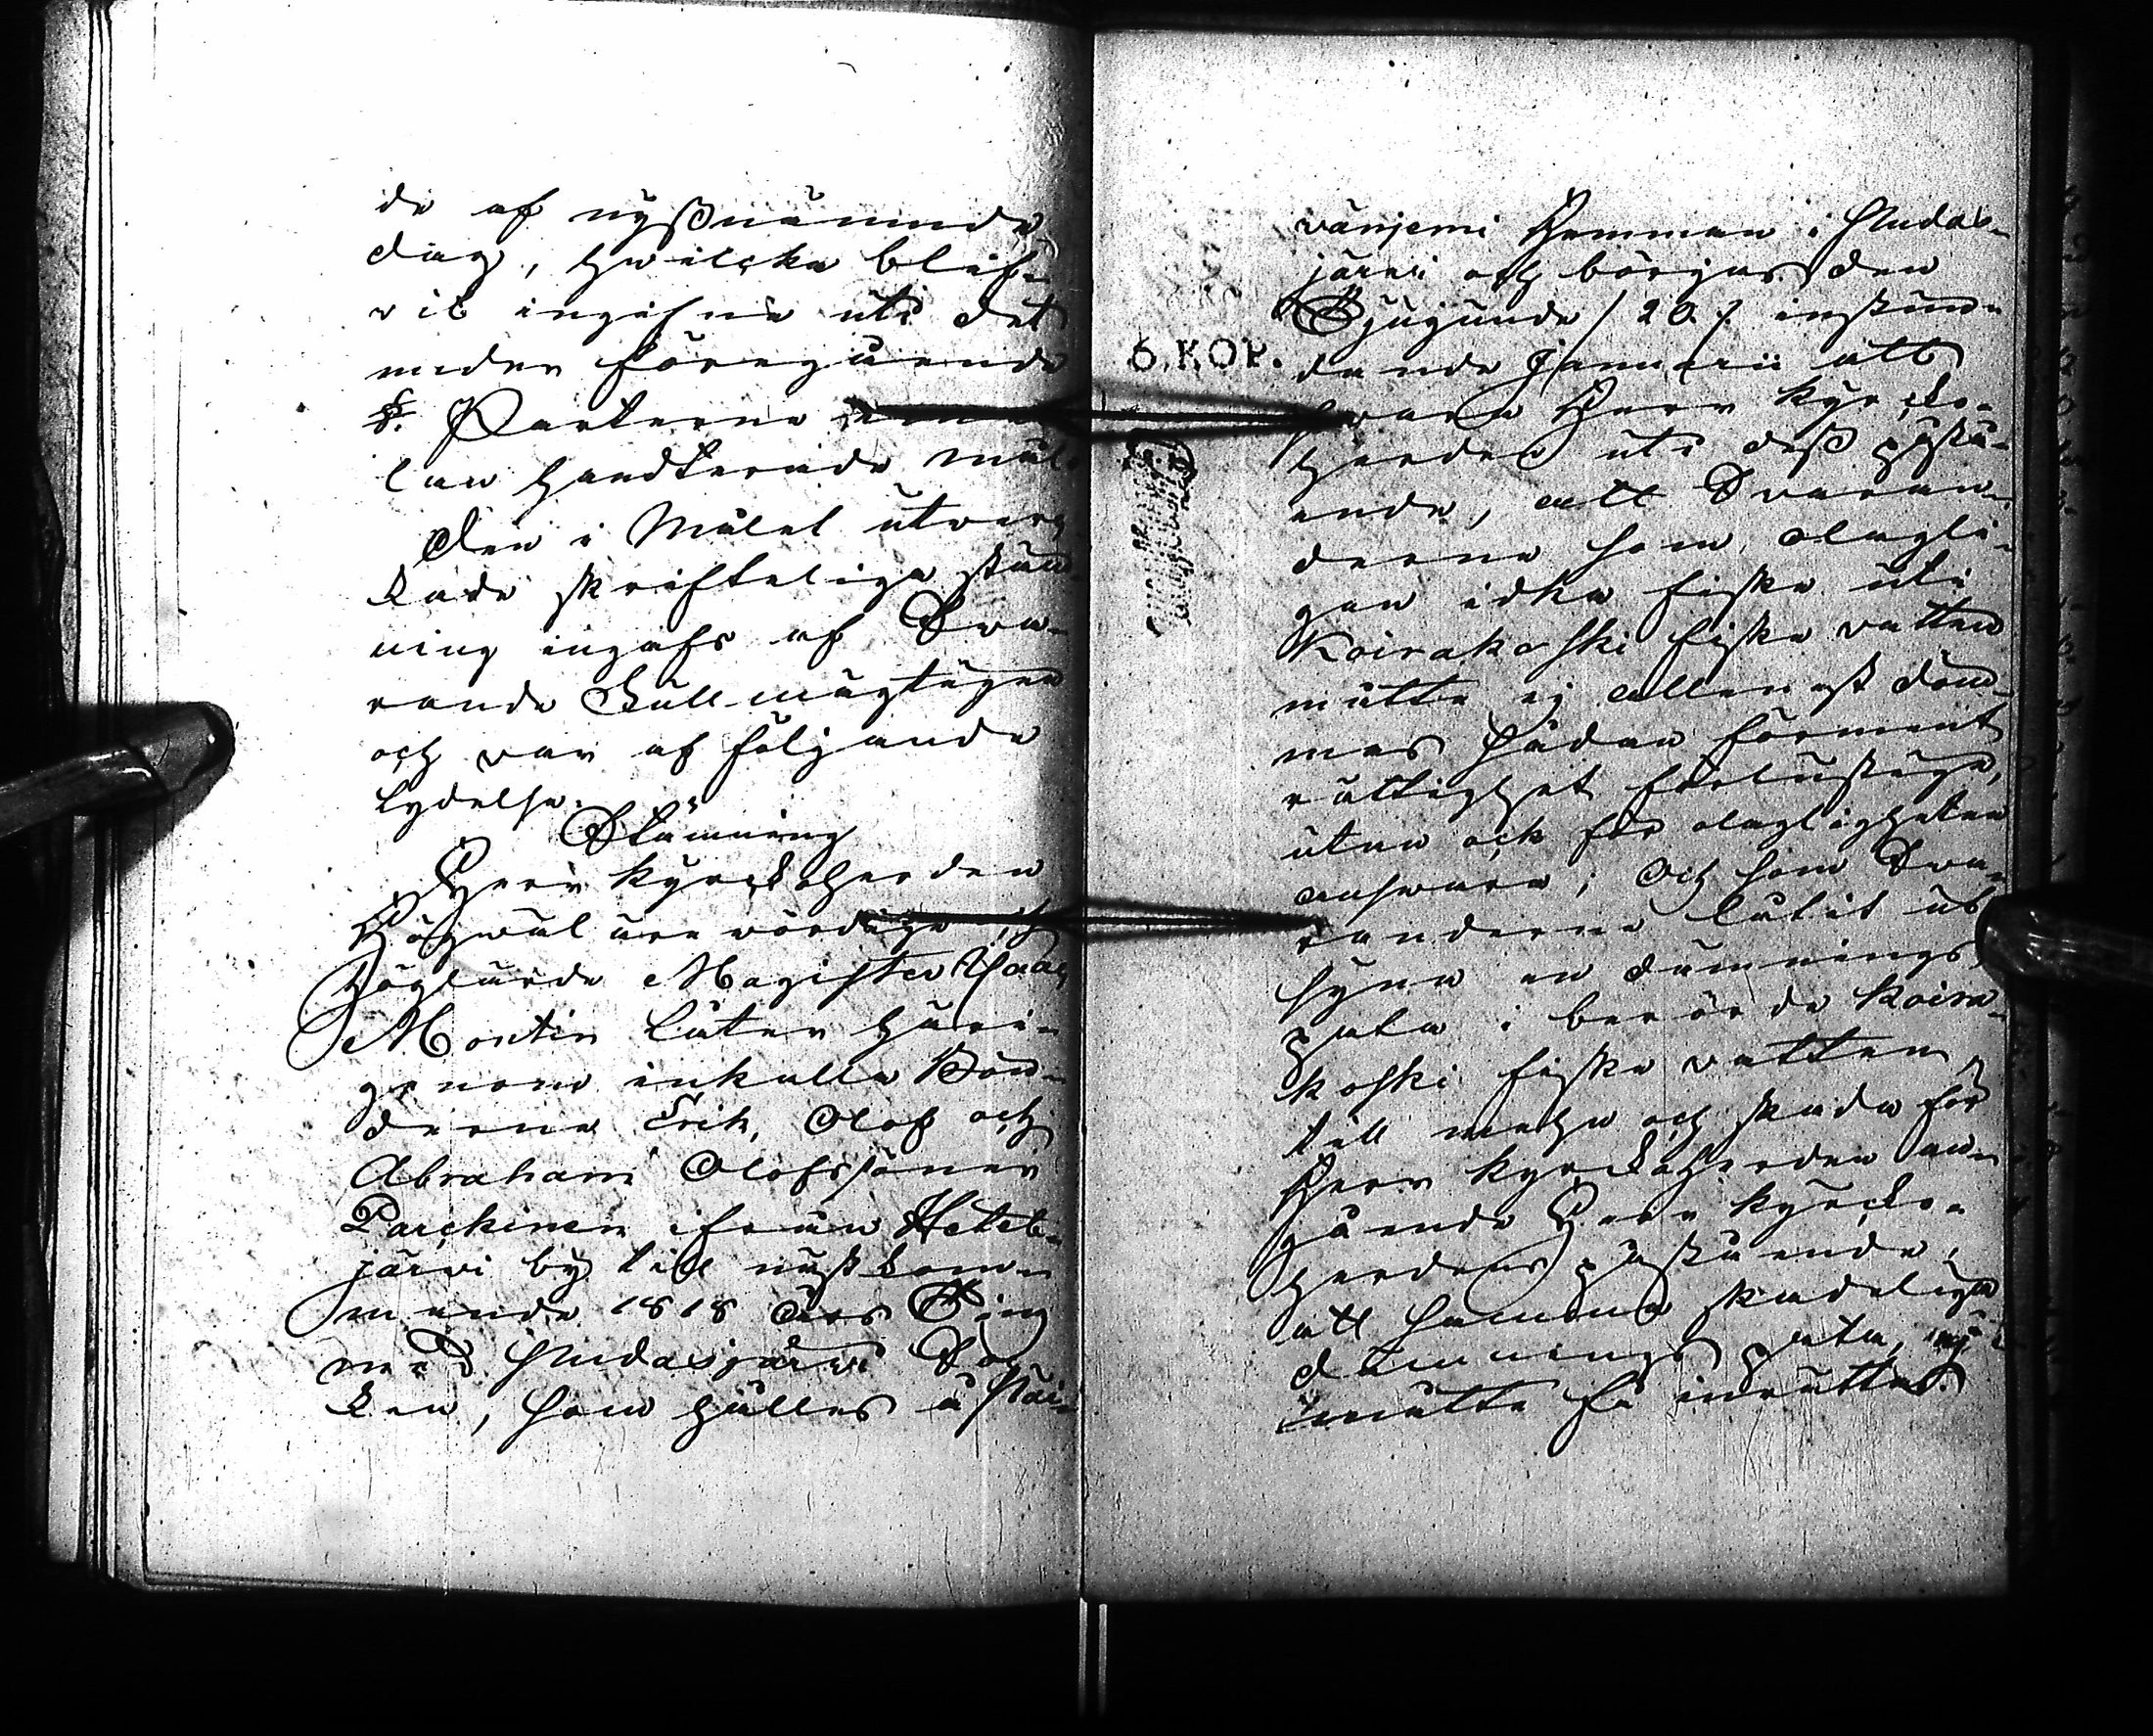 de af nyssnämnde
dag, hwilcka blif-
vit ingifne uti det
under föregående
§. Parterne emel-
lan handterade mål.
Den i Målet utver-
kade skrifteliga stäm-
ning ingafs af Sva-
rande Fullmägtigen
och var af följande
lydelse.
Stämning
Herr Kyrckoherden
Högwälärevördige och
Höglärde Magister Isaac
Montin låter häri-
genom inkalla Bön-
derne Erik, Olof och
Abraham Olofssöner
Parckinen ifrån Hetet-
järvi by till nästkom-
mande 1818 års Ting
med Pudasjärvi Soc-
ken, som hålles å Päi-
vänjemi Hemman i Pudas-
järvi och börjas den
Tjugunde /20./ instun-
dande Januarii att
svara Herr Kyrcko-
herden uti dess påstå-
ende, att Svaran-
derne som olagli-
gen idka fiske uti
Koirakoski fiske vatten
måtte ej allenast döm-
mas sådan förment
rättighet förlustige,
utan ock för olagligheten
answara; Och som Sva-
randerne låtit ut
syna en dämnings
pata i berörde Koira-
koski fiske vatten,
till mehn och skada för
Herr Kyrckoherden an-
gående Herr Kyrcko-
herdens påstående,
att samma skadeliga
dämnings pata, ej
måtte få inrättas.
6. KOP.